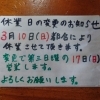 休業日の変更のお知らせ
3月10日(日)都合により
休業させて頂きます。
変えて第三日曜の17日(日)
営業します。
よろしくお願いします。